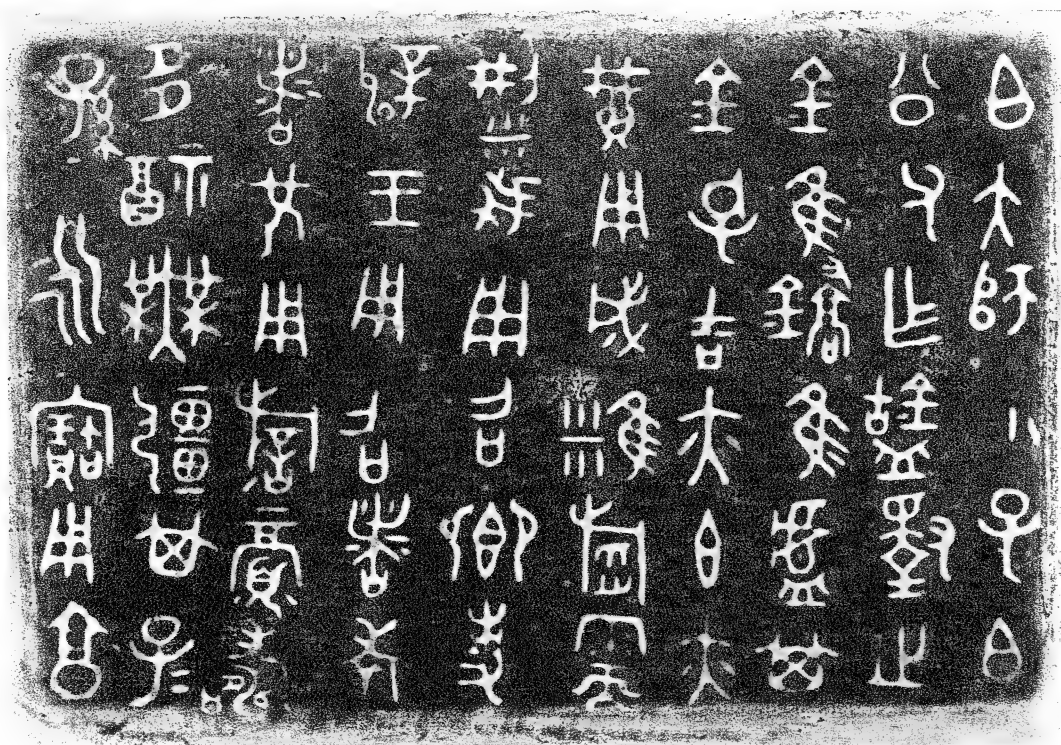 白大師小子白
公父乍𠤳擇之
金隹鐈隹盧其
金孔吉亦玄亦
黃用成𥼚稻需
梁我用召卿事
辟王用召者考
者兄用旂眉壽
多福無彊其子＝
孫＝永寶用亯